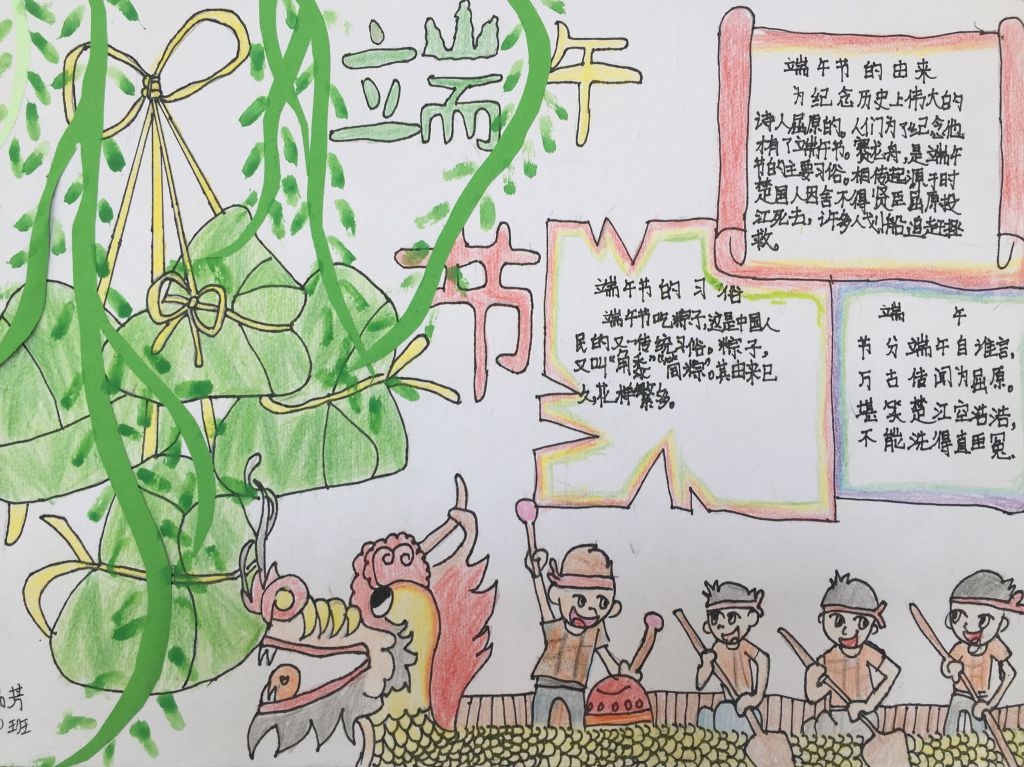 端午
节
端午节的由来
为纪念历史上伟大的
诗人屈原的。人们为了纪念他
才有了端午节。赛龙舟，是端午
节的主要习俗。相传起源于时
楚国人因舍不得贤臣屈原投
江死去，许多人划船追赶拯
救。
端午节的习俗
端午节吃粽子，这是中国人
民的又一传统习俗。粽子，
又叫“角黍”“筒粽”。其由来已
久，花样繁多。
端 午
节分端午自谁言，
万古传闻为屈原。
堪笑楚江空浩浩，
不能洗得直臣冤。
芳
班